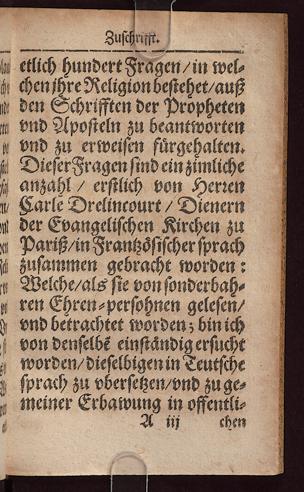 Zuschrifft.
etlich hundert Fragen/in wel-
chen jhre Religion bestehet/auß
den Schrifften der Propheten
vnd Aposteln zu beantworten
vnd zu erweisen fürgehalten.
Dieser Fragen sind ein zimliche
anzahl / erstlich von Herren
Carle Drelincourt / Dienern
der Evangelischen Kirchen zu
Pariß/in Frantzösischer sprach
zusammen gebracht worden :
Welche/als sie von sonderbah-
ren Ehren-persohnen gelesen/
vnd betrachtet worden; bin ich
von denselbẽ einständig ersucht
worden/dieselbigen in Teutsche
sprach zu vbersetzen/vnd zu ge-
meiner Erbawung in offentli-
A iij chen